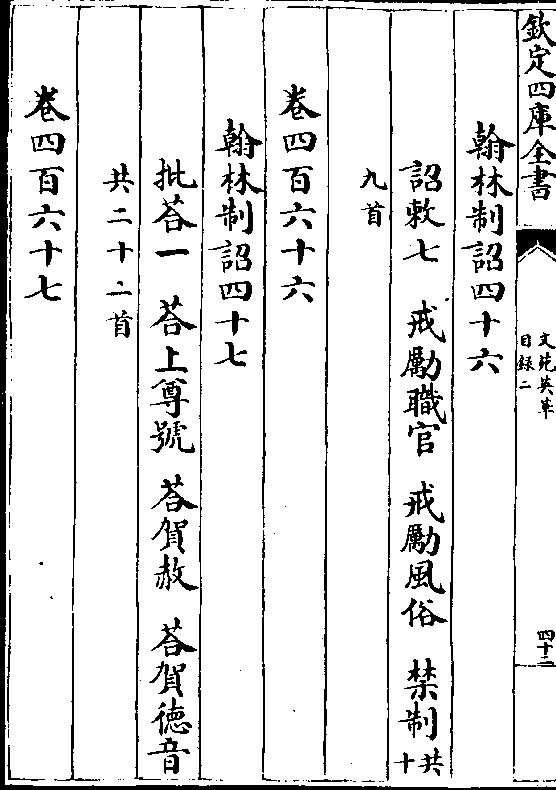 欽定四庫全書
文苑英華
目録二
四十二
翰林制詔四十六
詔敕七 戒勵職官 戒勵風俗 禁制共十
九首
卷四百六十六
翰林制詔四十七
批荅一 荅上尊號 荅賀赦 荅賀德音
共二十二首
卷四百六十七